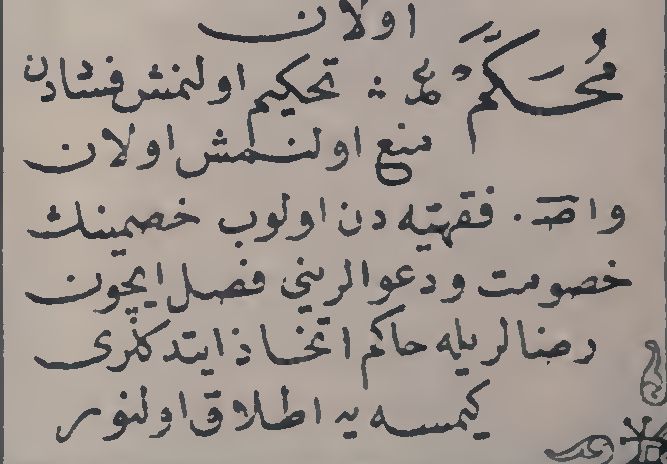 اولان
مُحَكَّمٌ عم : تحكيم اولنمش فساددن
منع اولنمش اولان
واصـ . فقهیه دن اولوب خصمينك
خصومت ودعوالرینی فصل ایچون
رضالریله حاکم اتخاذ ایتدکلری
کیمسه یه اطلاق اولنور